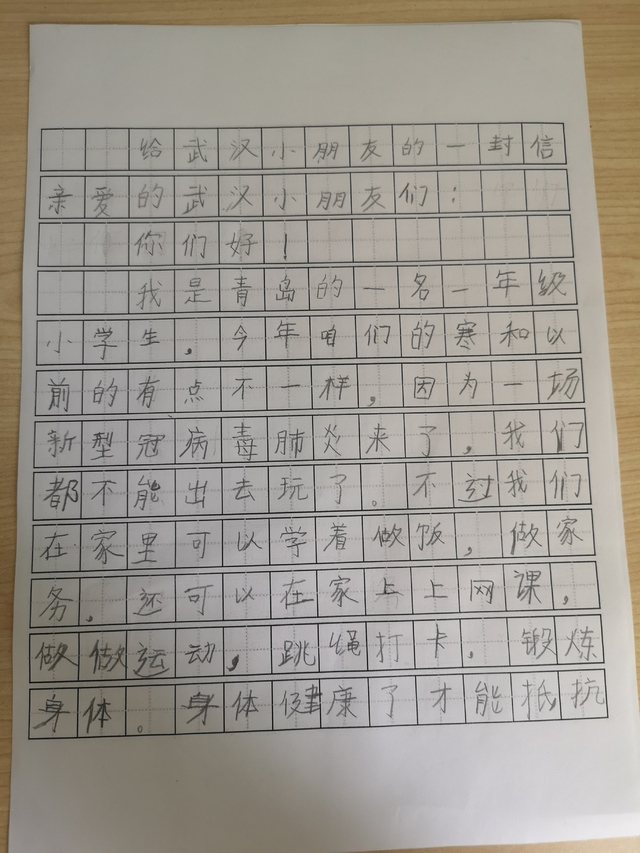 给武汉小朋友的一封信
亲爱的武汉小朋友们:
你们好!
我是青岛的一名一年级
小学生,今年咱们的寒和以
前的有点不一样,因为一场
新型冠病毒肺炎来了,我们
都不能出去玩了。不过我们
在家里可以学着做饭,做家
务,还可以在家上上网课,
做做运动,跳绳打卡,锻炼
身体。身体健康了才能抵抗